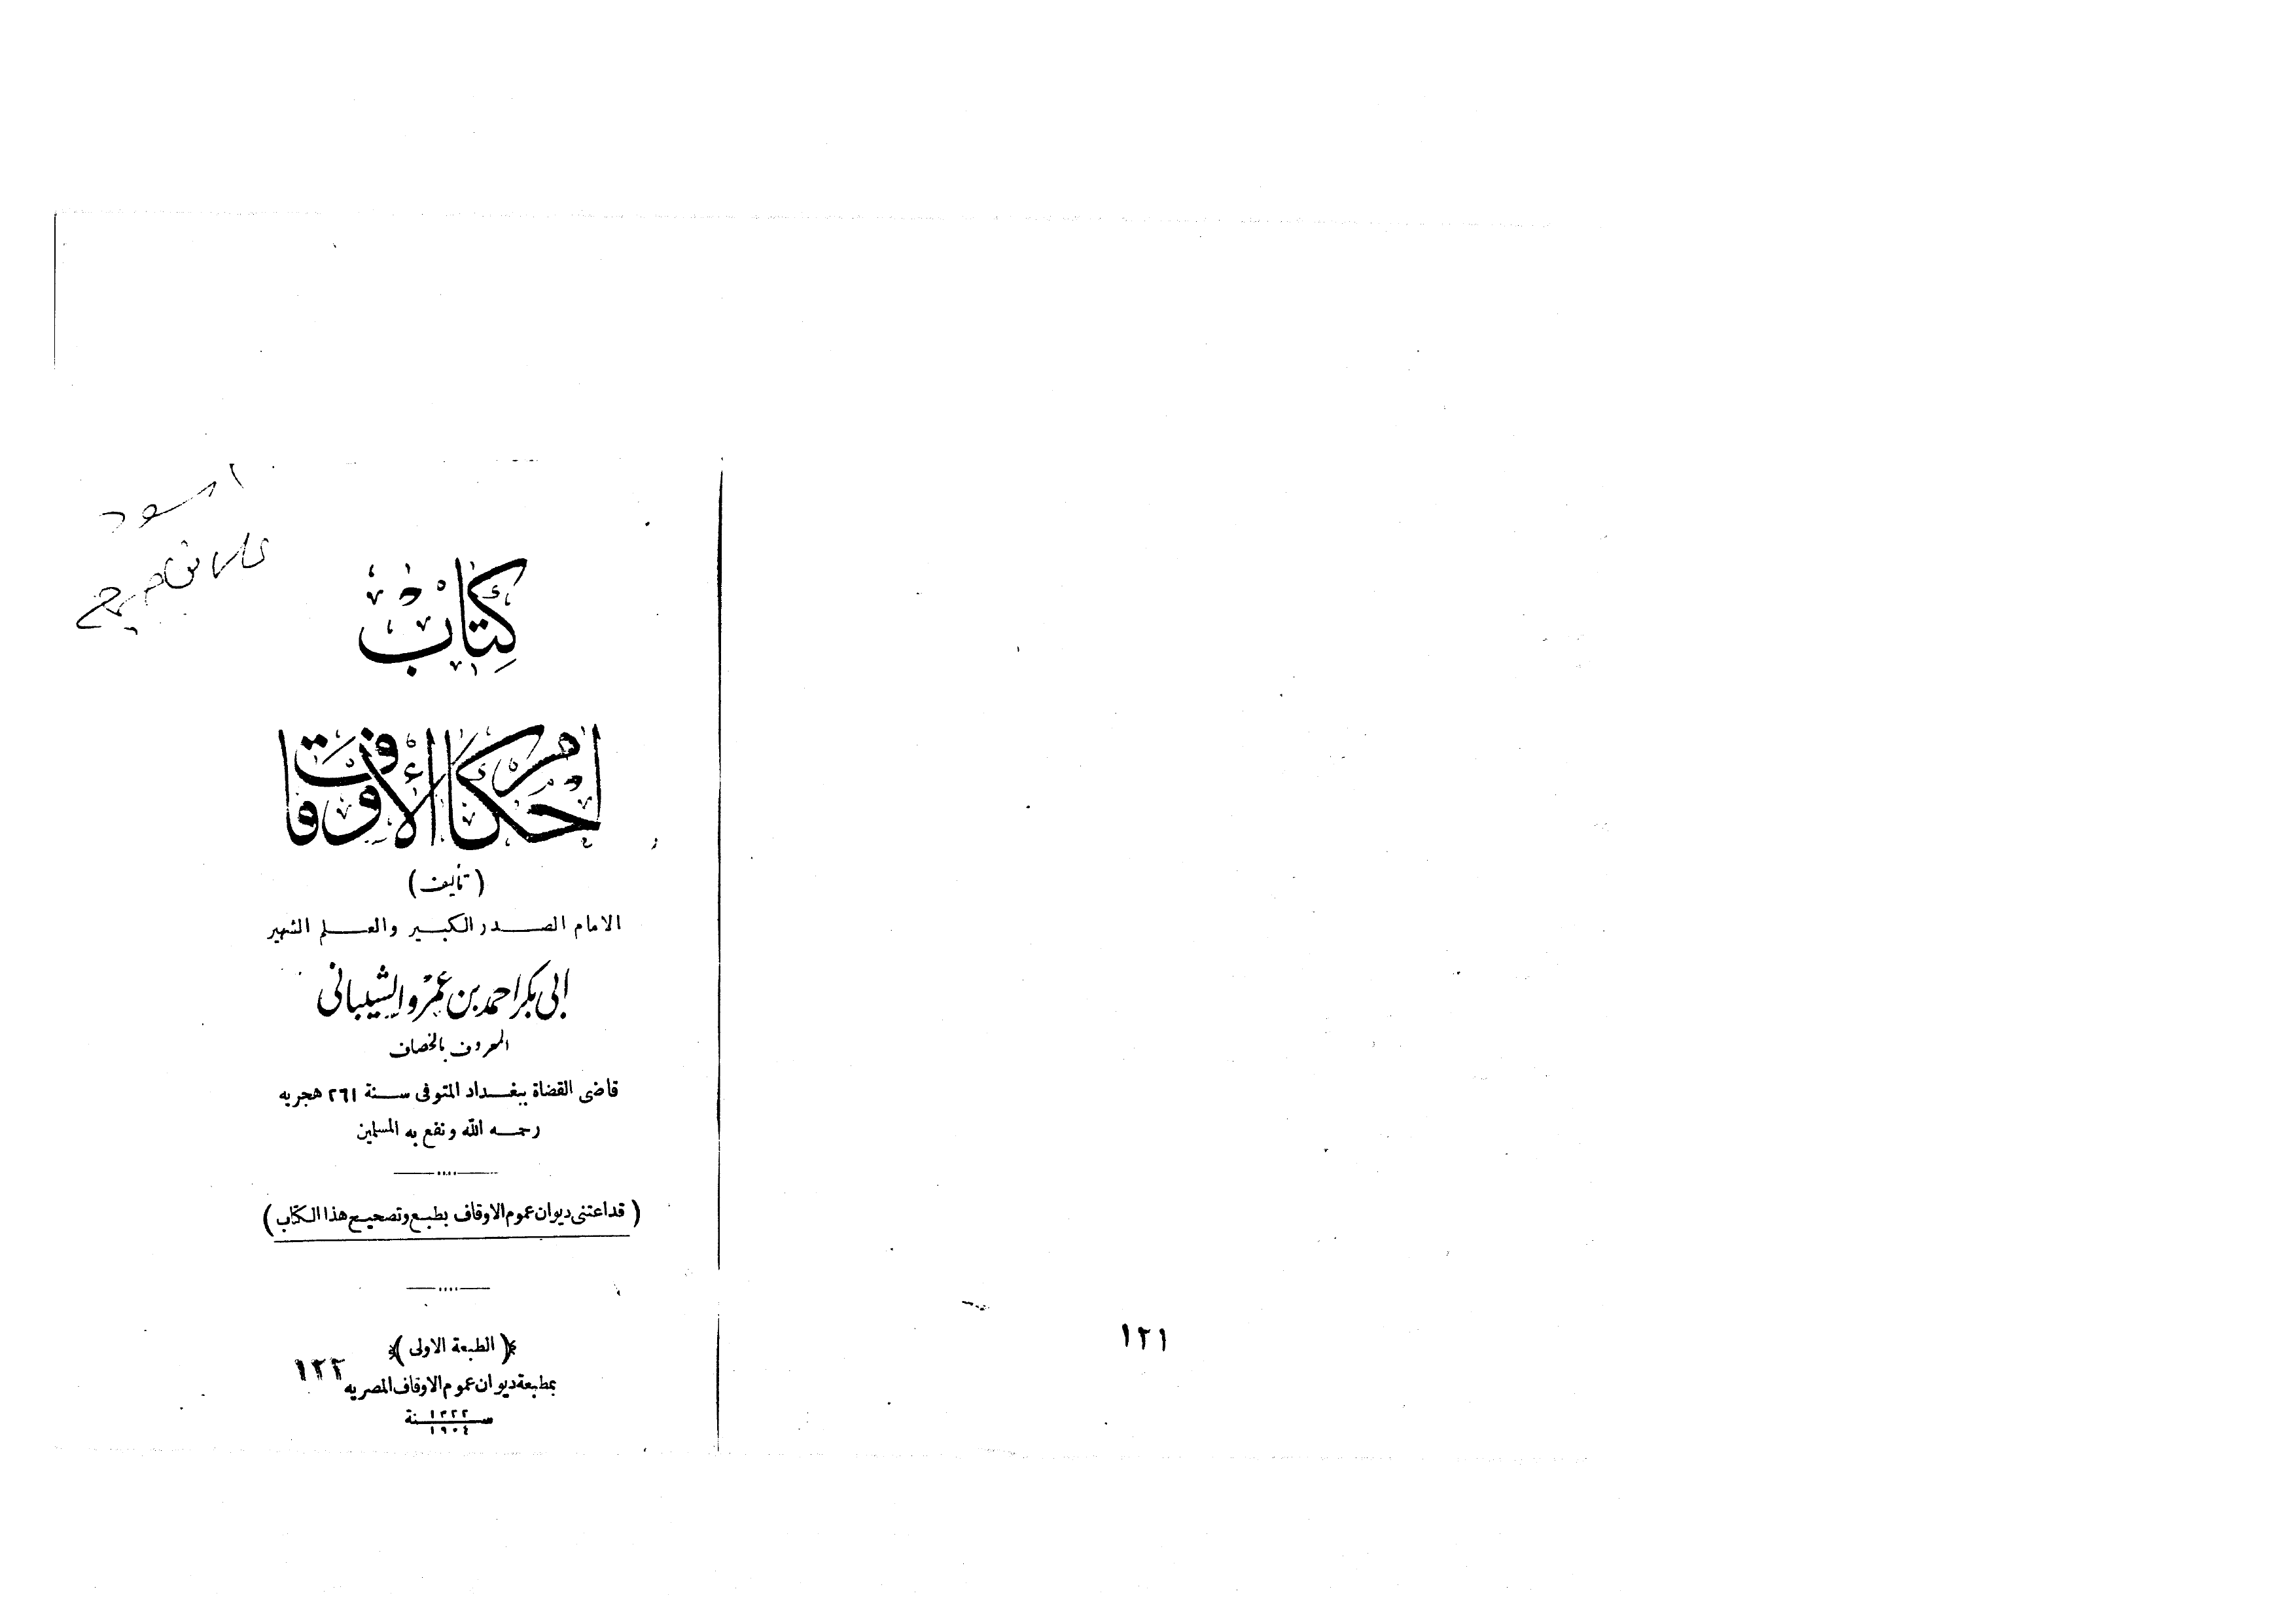 ١٢١
كِتَابُ
أحكام الأوقاف
(تأليف)
الامام الصدر الكبير والعلم الشهير
ابى بكر احمد بن عمرو الشيبانى
المعروف بالخصاف
قاضى القضاة ببغداد المتوفى سنة ٢٦١ هجريه
رحمه الله ونفع به المسلمين
(قد اعتنى ديوان عموم الاوقاف بطبع وتصحيح هذا الكتاب)
(الطبعة الاولى)
١٢٢
بمطبعة ديوان عموم الاوقاف المصريه
سنة ١٣٢٢
١٩٠٤